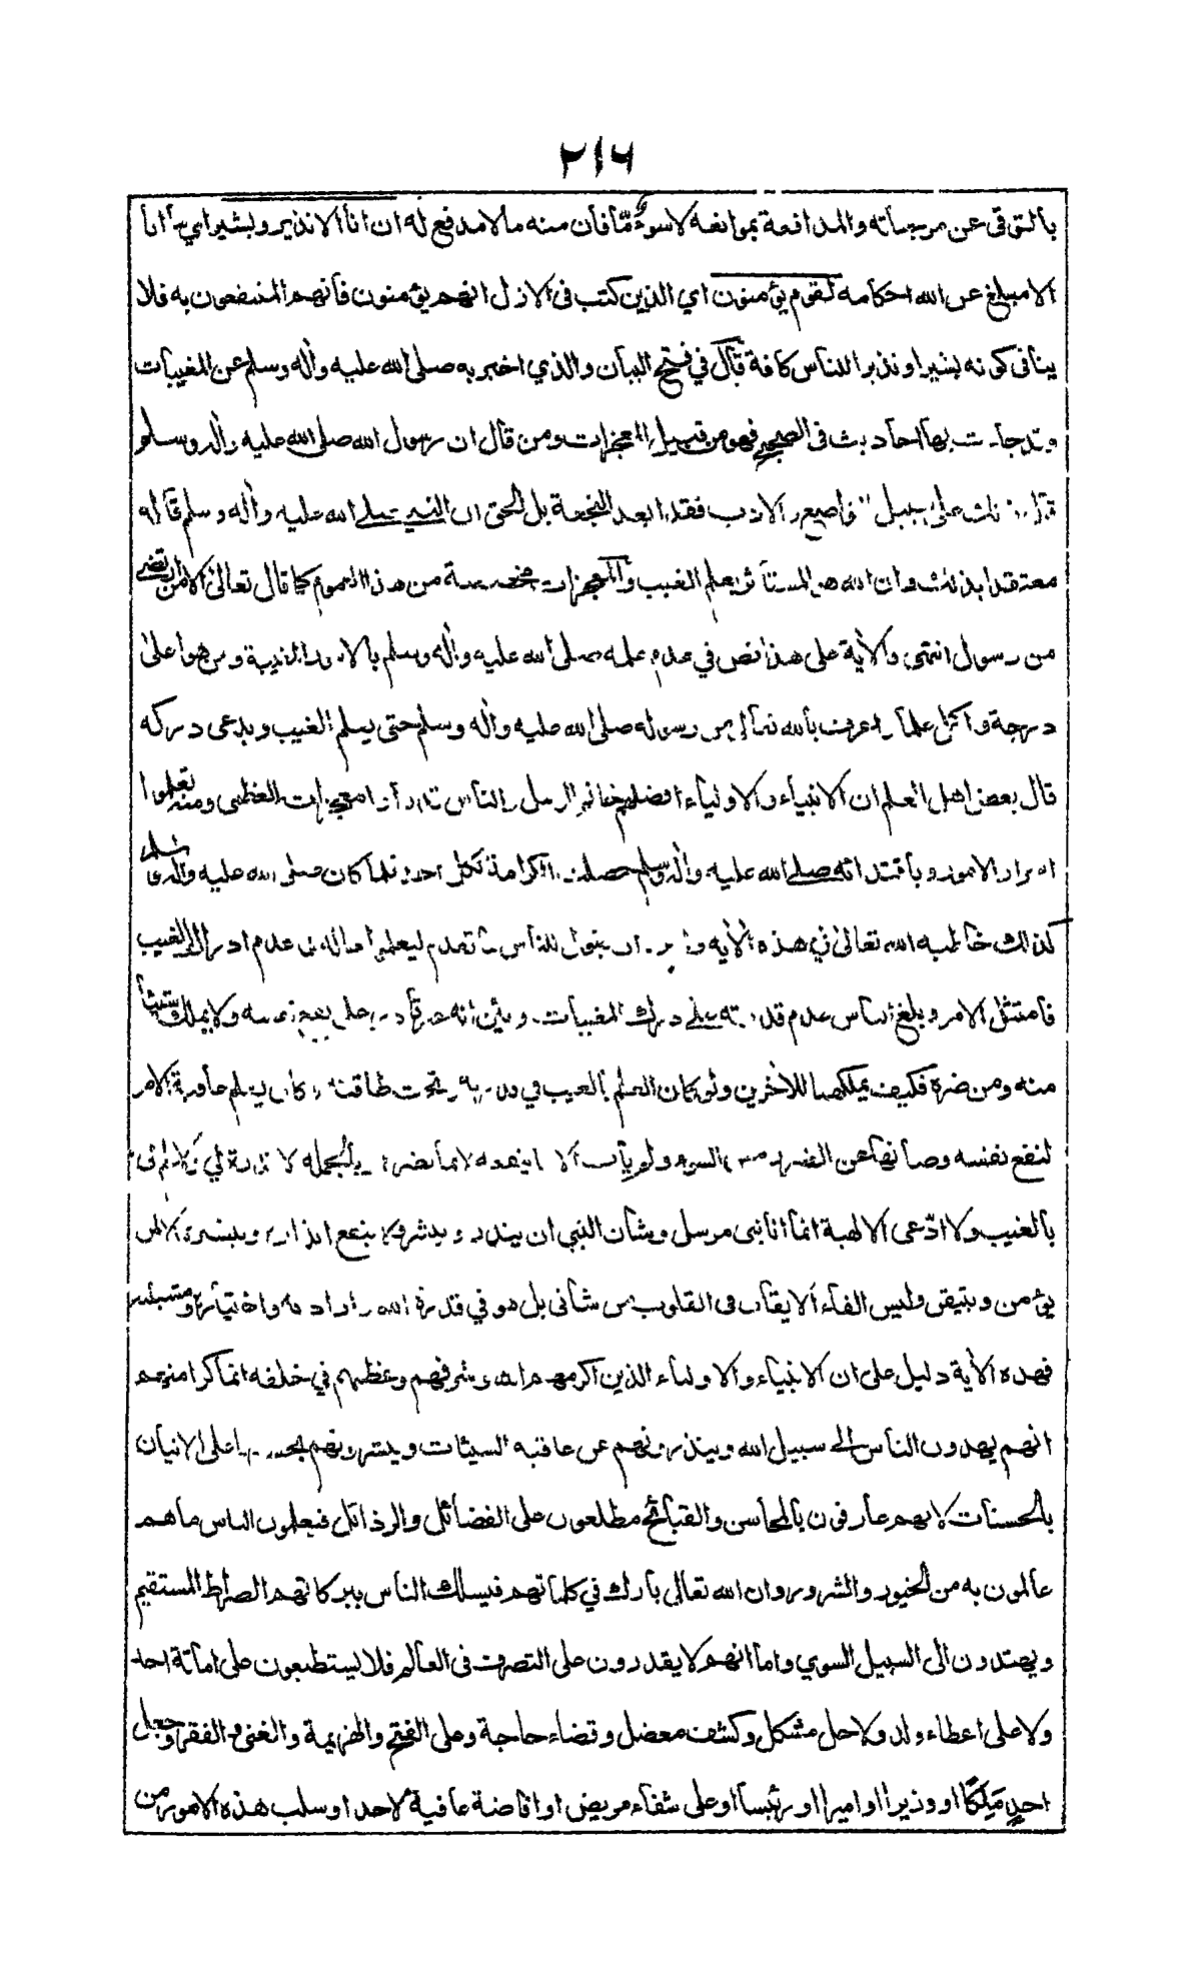 ٢١٦
بالتوقى عن موجباته والمدافعة بموانعه لا سوءٌ مّا فان منه ما لا مدفع له ان انا الا نذير وبشير اي ما انا
الا مبلغ عن الله احكامه لقوم يؤمنون اي الذين كتب فى الازل انهم يؤمنون فانهم المنتفعون به فلا
ينافى كونه بشيرا ونذيرا للناس كافة قال في فتح البيان والذي اخبر به صلى الله عليه واٰله وسلم عن المغيبات
وقد جاءت بها احاديث فى الصحيح فهو من قبيل المعجزات ومن قال ان رسول الله صلى الله عليه واٰله وسلم
قال ذلك على سبيل التواضع والادب فقد ابعد النجعة بل الحق ان النبي صلى الله عليه واٰله وسلم قاله
معتقدا بذلك وان الله هو المستأثر بعلم الغيب والمعجزات مخصصة من هذا العموم كما قال تعالى الا من ارتضى
من رسول انتهى والاٰية على هذا نص في عدم علمه صلى الله عليه واٰله وسلم بالامور الغيبية ومن هو اعلى
درجة واكثر علما واعرف بالله تعالى من رسوله صلى الله عليه واٰله وسلم حتى يعلم الغيب ويدعى دركه
قال بعض اهل العلم ان الانبياء والاولياء افضلهم خاتم الرسل والناس معجزات العظمى ومنه تعلموا
اسرار الامور وباقتدائه صلى الله عليه واٰله وسلم حصلت الكرامة لكل احد فلما كان صلى الله عليه واٰله وسلم
كذلك خاطبه الله تعالى في هذه الاٰية ان يقول للناس ليعلموا حاله من عدم ادراك الغيب
فامتثل الامر وبلغ الناس عدم قدرته على درك المغيبات وبين انه على نفسه ولا يملك شيئا
منه ومن ضره فكيف يملكها للاٰخرين ولو كان العلم بالغيب في تحت طاقته لكان يعلم عاقبة الامر
لنفع نفسه وصانها عن الضرر والسوء ولم يأت الا ما ينفعه لا ما يضره وبالجملة لا قدرة لي ولا علم لى
بالغيب ولا ادّعى الالهية انما انا نبى مرسل وشان النبي ان ينذر ويبشر ولا ينفع انذاره وتبشيره الا لمن
يؤمن ويتيقن وليس القاء الايقان فى القلوب من شانى بل هو في قدرة الله وارادته واختياره ومشيئته
فهذه الاٰية دليل على ان الانبياء والاولياء الذين اكرمهم الله وشرفهم وعظمهم في خلقه انما كرامتهم
انهم يهدون الناس الى سبيل الله وينذرونهم عن عاقبة السيئات ويبشرونهم على الاتيان
بالحسنات لانهم عارفون بالمحاسن والقبائح مطلعون على الفضائل والرذائل فيعلمون الناس ما هم
عالمون به من الخيور والشرور وان الله تعالى بارك في كلماتهم فيسلك الناس ببركاتهم الصراط المستقيم
ويهتدون الى السبيل السوي واما انهم لا يقدرون على التصرف فى العالم فلا يستطيعون على اماتة احد
ولا على اعطاء ولد ولا حل مشكل وكشف معضل وقضاء حاجة وعلى الفتح والهزيمة والغنى والفقر وجعل
احدٍ مَلِكًا او وزيرا او اميرا او رئيسا او على شفاء مريض او افاضة عافية لاحد او سلب هذه الامور من